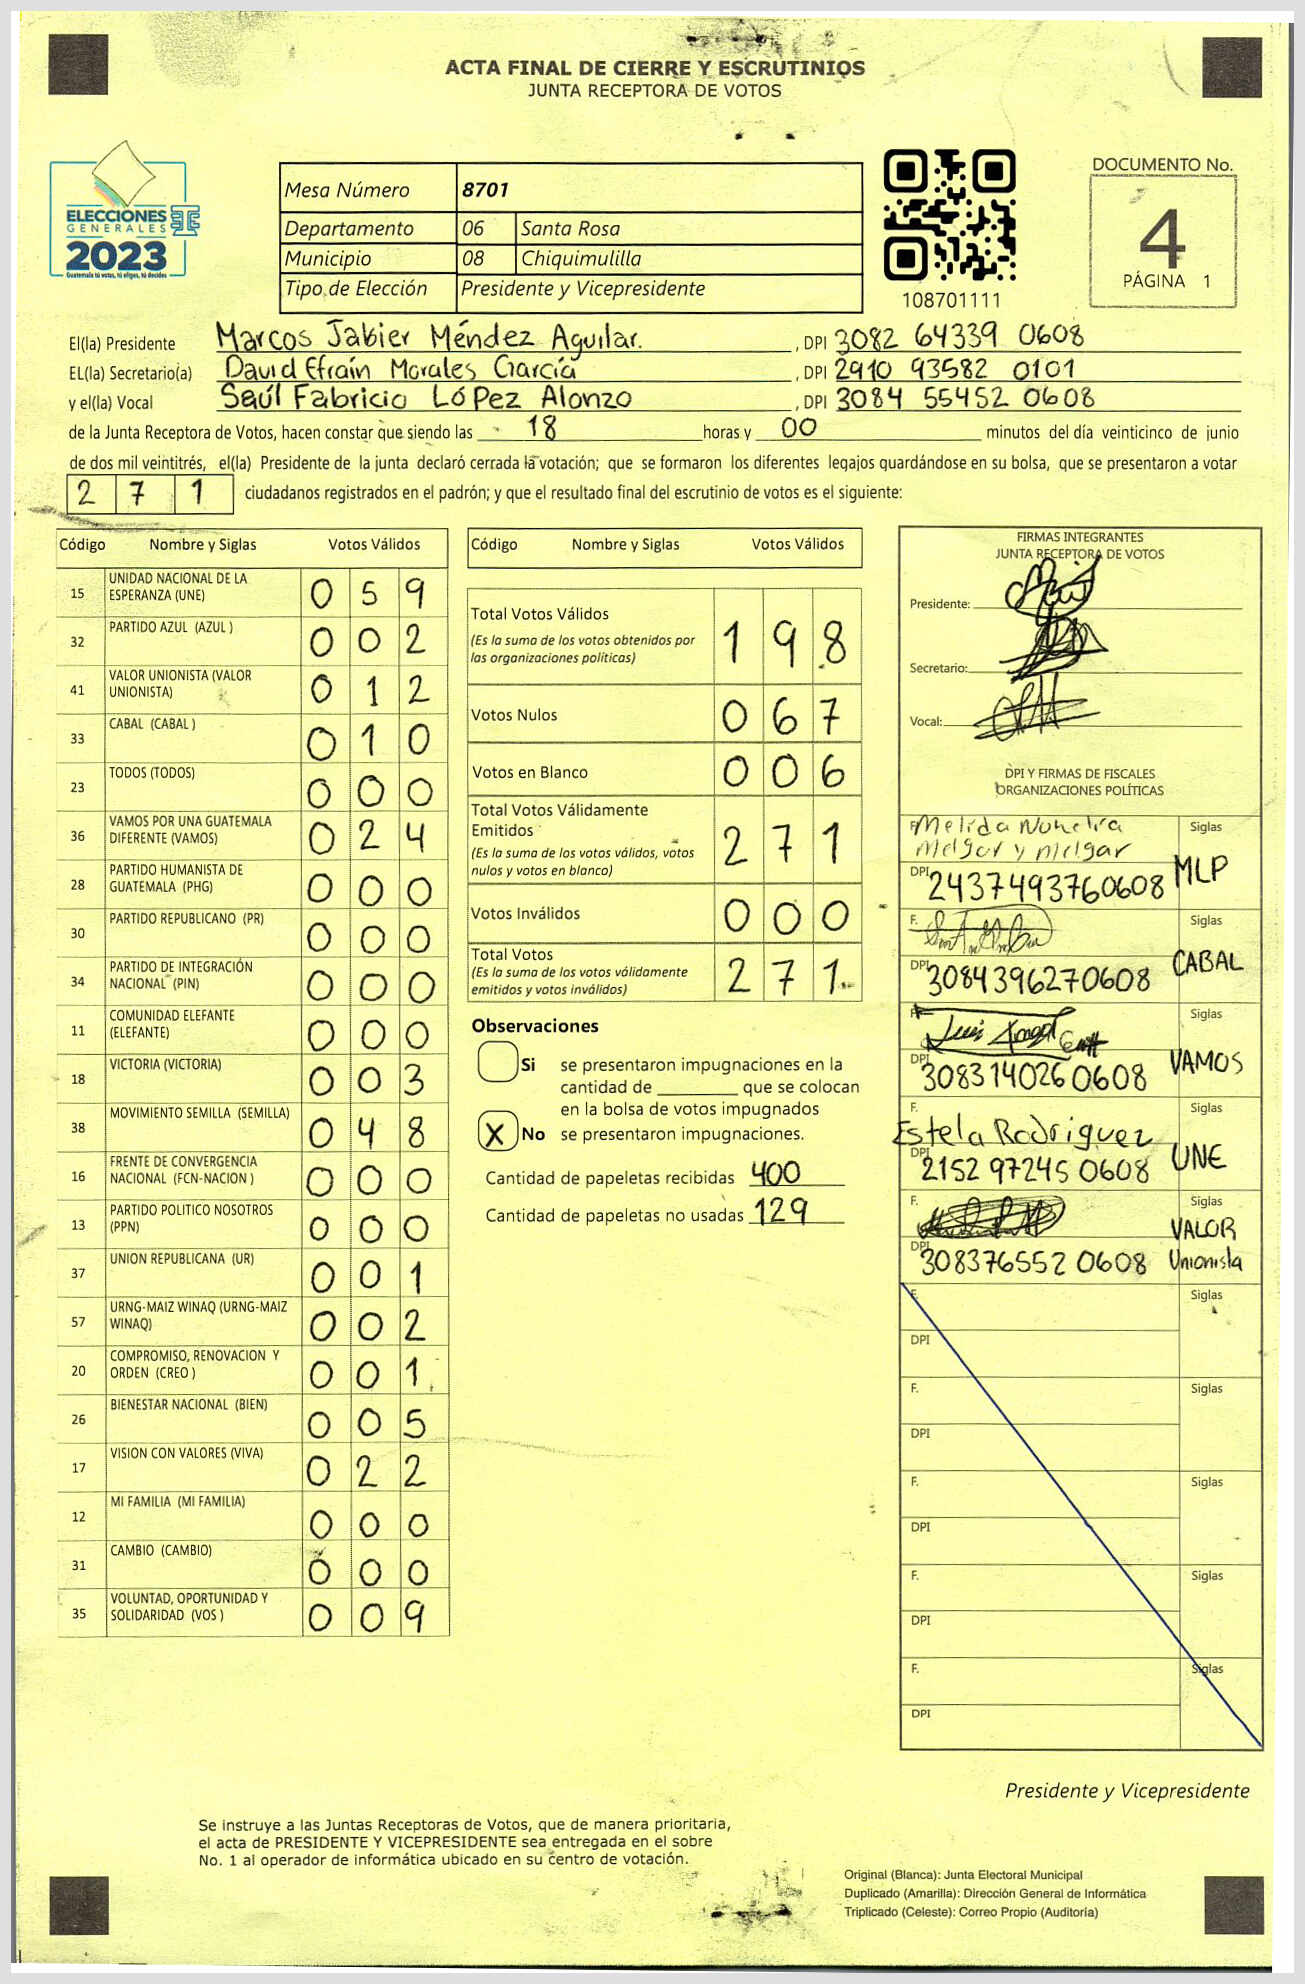 ACTA FINAL DE CIERRE Y ESCRUTINIOS
JUNTA RECEPTORA DE VOTOS
ELECCIONES
GENERALES
2023
Guatemala tú votas, tú eliges, tú decides
Mesa Número 8701
Departamento 06 Santa Rosa
Municipio 08 Chiquimulilla
Tipo de Elección Presidente y Vicepresidente
108701111
DOCUMENTO No.
4
PÁGINA 1
El(la) Presidente Marcos Jabier Méndez Aguilar. , DPI 3082 64339 0608
EL(la) Secretario(a) David Efraín Morales García , DPI 2910 93582 0101
y el(la) Vocal Saúl Fabricio López Alonzo , DPI 3084 55452 0608
de la Junta Receptora de Votos, hacen constar que siendo las 18 horas y 00 minutos del día veinticinco de junio
de dos mil veintitrés, el(la) Presidente de la junta declaró cerrada la votación; que se formaron los diferentes legajos guardándose en su bolsa, que se presentaron a votar
2 7 1 ciudadanos registrados en el padrón; y que el resultado final del escrutinio de votos es el siguiente:
Código Nombre y Siglas Votos Válidos
15 UNIDAD NACIONAL DE LA ESPERANZA (UNE) 0 5 9
32 PARTIDO AZUL (AZUL ) 0 0 2
41 VALOR UNIONISTA (VALOR UNIONISTA) 0 1 2
33 CABAL (CABAL ) 0 1 0
23 TODOS (TODOS) 0 0 0
36 VAMOS POR UNA GUATEMALA DIFERENTE (VAMOS) 0 2 4
28 PARTIDO HUMANISTA DE GUATEMALA (PHG) 0 0 0
30 PARTIDO REPUBLICANO (PR) 0 0 0
34 PARTIDO DE INTEGRACIÓN NACIONAL (PIN) 0 0 0
11 COMUNIDAD ELEFANTE (ELEFANTE) 0 0 0
18 VICTORIA (VICTORIA) 0 0 3
38 MOVIMIENTO SEMILLA (SEMILLA) 0 4 8
16 FRENTE DE CONVERGENCIA NACIONAL (FCN-NACION ) 0 0 0
13 PARTIDO POLITICO NOSOTROS (PPN) 0 0 0
37 UNION REPUBLICANA (UR) 0 0 1
57 URNG-MAIZ WINAQ (URNG-MAIZ WINAQ) 0 0 2
20 COMPROMISO, RENOVACION Y ORDEN (CREO ) 0 0 1
26 BIENESTAR NACIONAL (BIEN) 0 0 5
17 VISION CON VALORES (VIVA) 0 2 2
12 MI FAMILIA (MI FAMILIA) 0 0 0
31 CAMBIO (CAMBIO) 0 0 0
35 VOLUNTAD, OPORTUNIDAD Y SOLIDARIDAD (VOS ) 0 0 9
Código Nombre y Siglas Votos Válidos
Total Votos Válidos 1 9 8
(Es la suma de los votos obtenidos por
las organizaciones políticas)
Votos Nulos 0 6 7
Votos en Blanco 0 0 6
Total Votos Válidamente
Emitidos 2 7 1
(Es la suma de los votos válidos, votos
nulos y votos en blanco)
Votos Inválidos 0 0 0
Total Votos 2 7 1
(Es la suma de los votos válidamente
emitidos y votos inválidos)
Observaciones
Si se presentaron impugnaciones en la
cantidad de ________ que se colocan
en la bolsa de votos impugnados
X No se presentaron impugnaciones.
Cantidad de papeletas recibidas 400
Cantidad de papeletas no usadas 129
FIRMAS INTEGRANTES
JUNTA RECEPTORA DE VOTOS
Presidente:
Secretario:
Vocal:
DPI Y FIRMAS DE FISCALES
ORGANIZACIONES POLÍTICAS
F. Melida Siglas
Melgar y Melgar
DPI 2437493760608 MLP
F. Siglas
DPI 3084396270608 CABAL
F. Luis Angel Siglas
DPI 3083140260608 VAMOS
F. Siglas
Estela Rodriguez
DPI 2152 97245 0608 UNE
F. Siglas
DPI 308376552 0608 VALOR Unionista
F. Siglas
DPI
F. Siglas
DPI
F. Siglas
DPI
F. Siglas
DPI
F. Siglas
DPI
Presidente y Vicepresidente
Se instruye a las Juntas Receptoras de Votos, que de manera prioritaria,
el acta de PRESIDENTE Y VICEPRESIDENTE sea entregada en el sobre
No. 1 al operador de informática ubicado en su centro de votación.
Original (Blanca): Junta Electoral Municipal
Duplicado (Amarilla): Dirección General de Informática
Triplicado (Celeste): Correo Propio (Auditoría)